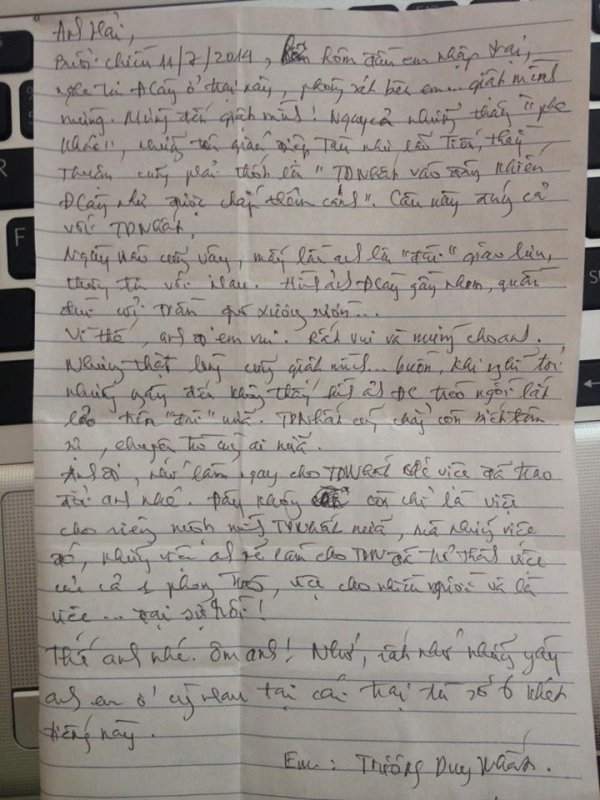 Anh Hải,
Buổi chiều 11/7/2014, hôm đầu em nhập trại,
nghe tin ĐCày ở trại này, phòng sát bên em... giật mình
mừng. Mừng đến giật mình! Nguyên những thằng
những tên gián điệp Tàu như lão Tiến, thầy
Thuần cũng phải thốt lên "TDNhất vào đây khiến
ĐCày như được chắp thêm cánh". Câu này đúng cả
với TDNhất.
Ngày nào cũng vậy, mấy lần anh lên "đài" giao lưu,
thông tin với nhau. Hình ảnh ĐCày gầy nhom, quần
đùi cởi trần giơ xương sườn...
Vì thế, anh đi em vui. Rất vui và mừng cho anh.
Nhưng thật lòng cũng giật mình... buồn, khi nghĩ tới
những ngày đến không thấy hình ảnh ĐC trèo ngồi lắt
lẻo trên "đài" nữa. TDNhất cũng chẳng còn biết tâm
sự, chuyện trò cùng ai nữa.
Anh đi, nhớ làm ngay cho TDNhất việc đã trao
đổi anh nhé. Đây không còn chỉ là việc
cho riêng mình TDNhất nữa, mà những việc
đó, những anh sẽ làm cho TDN đã trở thành việc
của cả 1 phong trào, việc cho nhiều người và là
việc... đại sự rồi!
Thế anh nhé. Ôm anh! Nhớ, rất nhớ những ngày
anh em ở cùng nhau tại cái trại tù số 6 khét
tiếng này.
Em: Trương Duy Nhất.